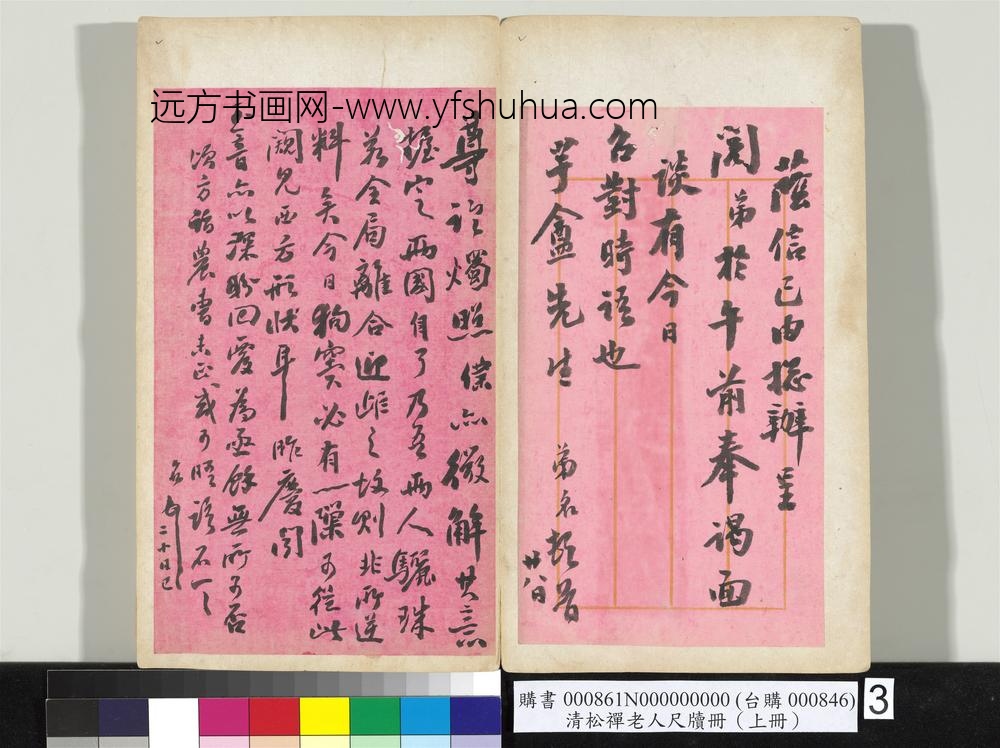 远方书画网-www.yfshuhua.com
蔭信已由總辦呈
閱弟於午前奉謁面
談有今日
召對時語也
芋盦先生
弟名頓首
廿八日
尊論燭照傑亦微解其言
握定兩國自了乃吾兩人驪珠
若全局離合迎距之故則非所逆
料矣今日狗竇必有一隙可從此
闚見西方形狀耳昨慶閣
意亦以深盼回電為亟餘無所可否
頃方詣農曹未正或可晤語不一一
名 二十日巳
購書 000861N000000000 (台購 000846)
清松禪老人尺牘冊（上冊）
3